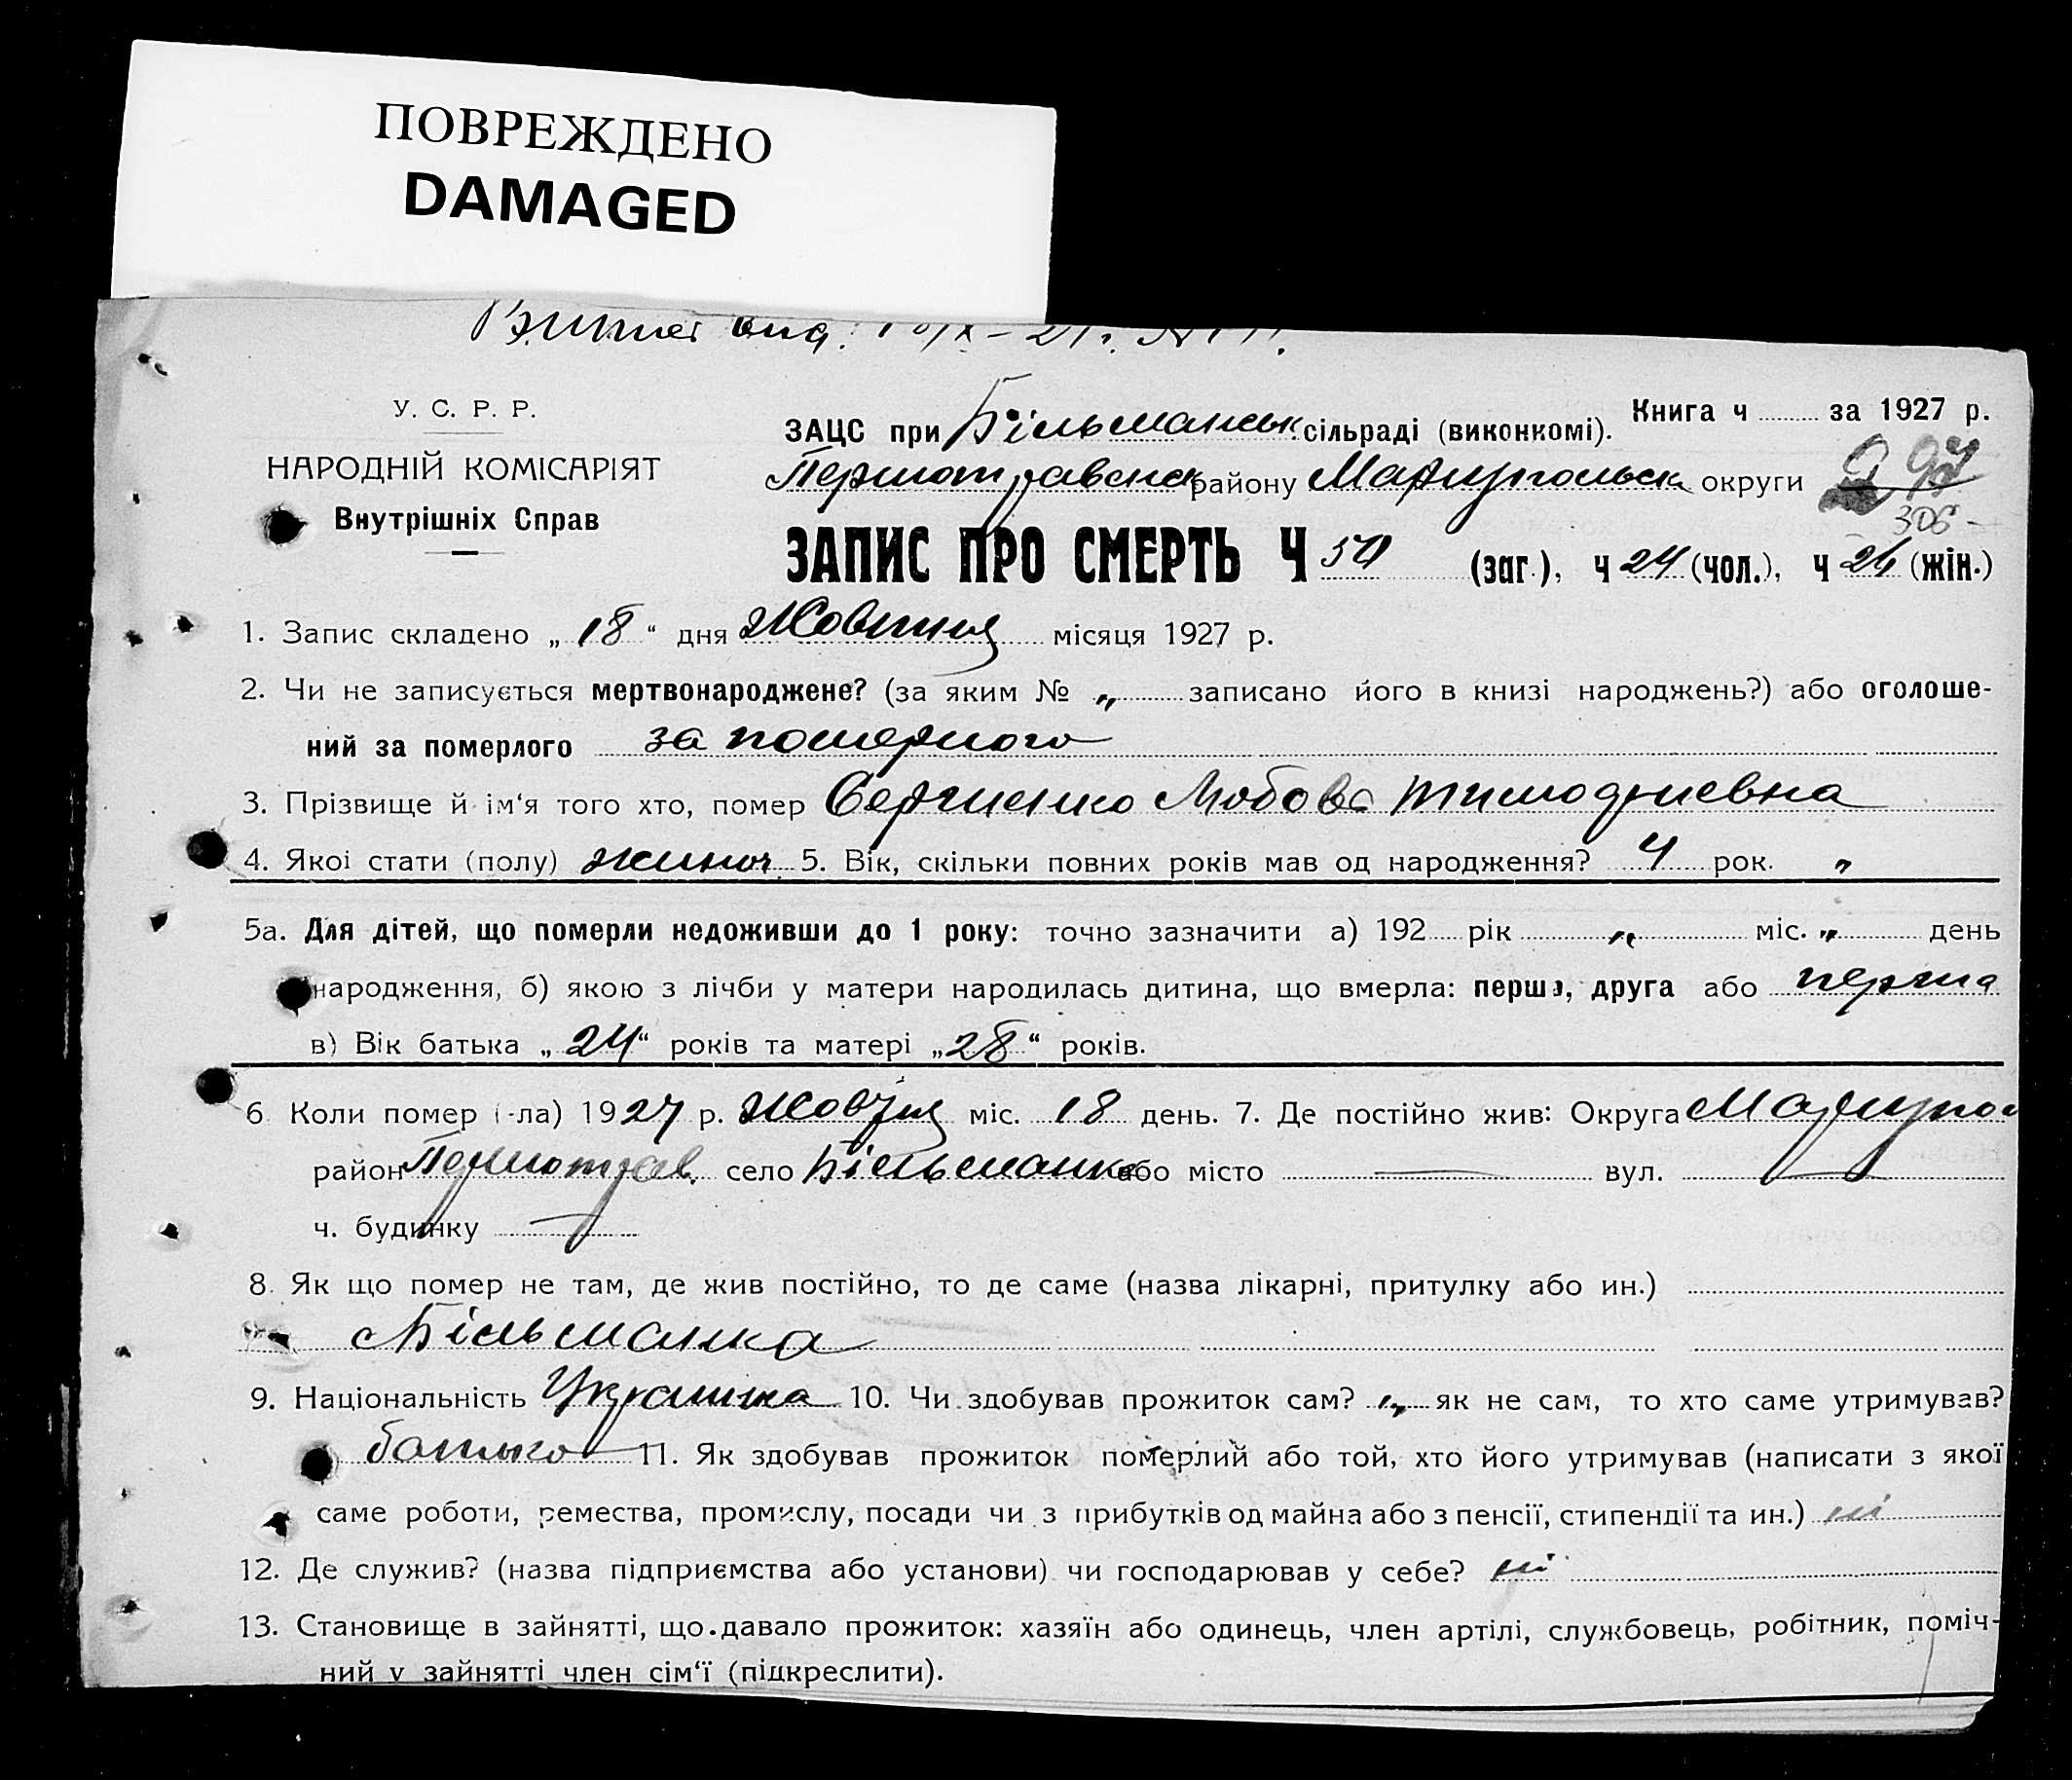 ПОВРЕЖДЕНО
DAMAGED
У. С. Р. Р.
НАРОДНІЙ КОМІСАРІЯТ
Внутрішніх Справ
Книга ч за 1927 р.
ЗАЦС при Більманськ. сільраді (виконкомі).
Першотравенск району Маріупольськ округи
306
ЗАПИС ПРО СМЕРТЬ Ч 50 (заг.), ч 24 (чол.), ч 26 (жін.)
1. Запис складено „ 18 “ дня Жовтня місяця 1927 р.
2. Чи не записується мертвонароджене? (за яким № „ записано його в книзі народжень?) або оголоше-
ний за померлого за померлого
3. Прізвище й ім‘я того хто, помер Сергиенко Любовь Тимофиевна
4. Якоі стати (полу) жиноч. 5. Вік, скільки повних років мав од народження? 4 рок. „
5а. Для дітей, що померли недоживши до 1 року: точно зазначити а) 192 рік „ міс. „ день
народження, б) якою з лічби у матери народилась дитина, що вмерла: перша, друга або перша
в) Вік батька „ 24 “ років та матері „ 28 “ років.
6 Коли помер (-ла) 1927 р. Жовтня міс. 18 день. 7. Де постійно жив: Округа Мариупол
район Першотрав. село Більманка або місто — вул. —
ч. будинку —
8. Як що помер не там, де жив постійно, то де саме (назва лікарні, притулку або ин.)
с Більманка
9. Національність Украинка 10. Чи здобував прожиток сам? „ як не сам, то хто саме утримував?
батько 11. Як здобував прожиток померлий або той, хто його утримував (написати з якої
саме роботи, ремества, промислу, посади чи з прибутків од майна або з пенсії, стипендії та ин.) ні
12. Де служив? (назва підприємства або установи) чи господарював у себе? ні
13. Становище в зайнятті, що давало прожиток: хазяїн або одинець, член артілі, службовець, робітник, поміч-
ний у зайнятті член сім‘ї (підкреслити).